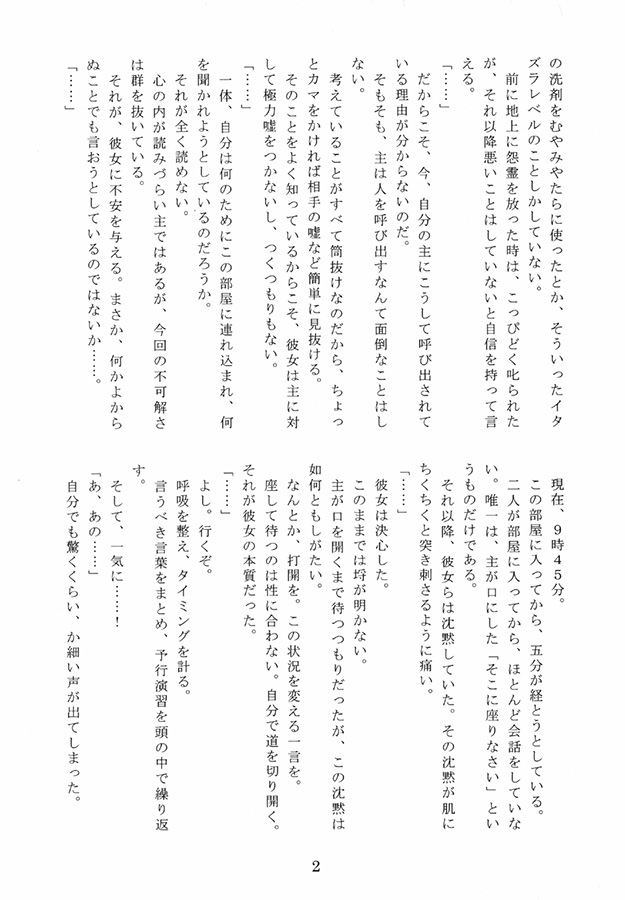 の洗剤をむやみやたらに使ったとか、そういったイタ
ズラレベルのことしかしていない。
前に地上に怨霊を放った時は、こっぴどく叱られた
が、それ以降悪いことはしていないと自信を持って言
える。
「……」
だからこそ、今、自分の主にこうして呼び出されて
いる理由が分からないのだ。
そもそも、主は人を呼び出すなんて面倒なことはし
ない。
考えていることがすべて筒抜けなのだから、ちょっ
とカマをかければ相手の嘘など簡単に見抜ける。
そのことをよく知っているからこそ、彼女は主に対
して極力嘘をつかないし、つくつもりもない。
「……」
一体、自分は何のためにこの部屋に連れ込まれ、何
を聞かれようとしているのだろうか。
それが全く読めない。
心の内が読みづらい主ではあるが、今回の不可解さ
は群を抜いている。
それが、彼女に不安を与える。まさか、何かよから
ぬことでも言おうとしているのではないか……。
「……」
現在、９時４５分。
この部屋に入ってから、五分が経とうとしている。
二人が部屋に入ってから、ほとんど会話をしていな
い。唯一は、主が口にした「そこに座りなさい」とい
うものだけである。
それ以降、彼女らは沈黙していた。その沈黙が肌に
ちくちくと突き刺さるように痛い。
「……」
彼女は決心した。
このままでは埒が明かない。
主が口を開くまで待つつもりだったが、この沈黙は
如何ともしがたい。
なんとか、打開を。この状況を変える一言を。
座して待つのは性に合わない。自分で道を切り開く。
それが彼女の本質だった。
「……」
よし。行くぞ。
呼吸を整え、タイミングを計る。
言うべき言葉をまとめ、予行演習を頭の中で繰り返
す。
そして、一気に……！
「あ、あの……」
自分でも驚くくらい、か細い声が出てしまった。
2